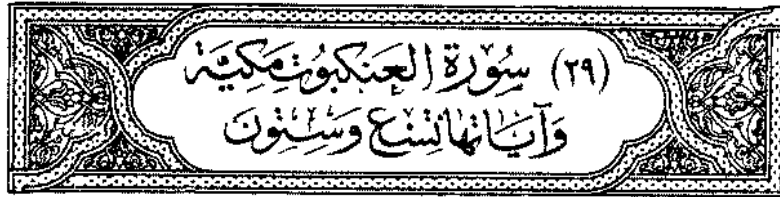 (٢٩) سُورَة العَنكبُوتِ مَكيَّة
وَآيَاتهَا تِسْع وَسِتُّونَ